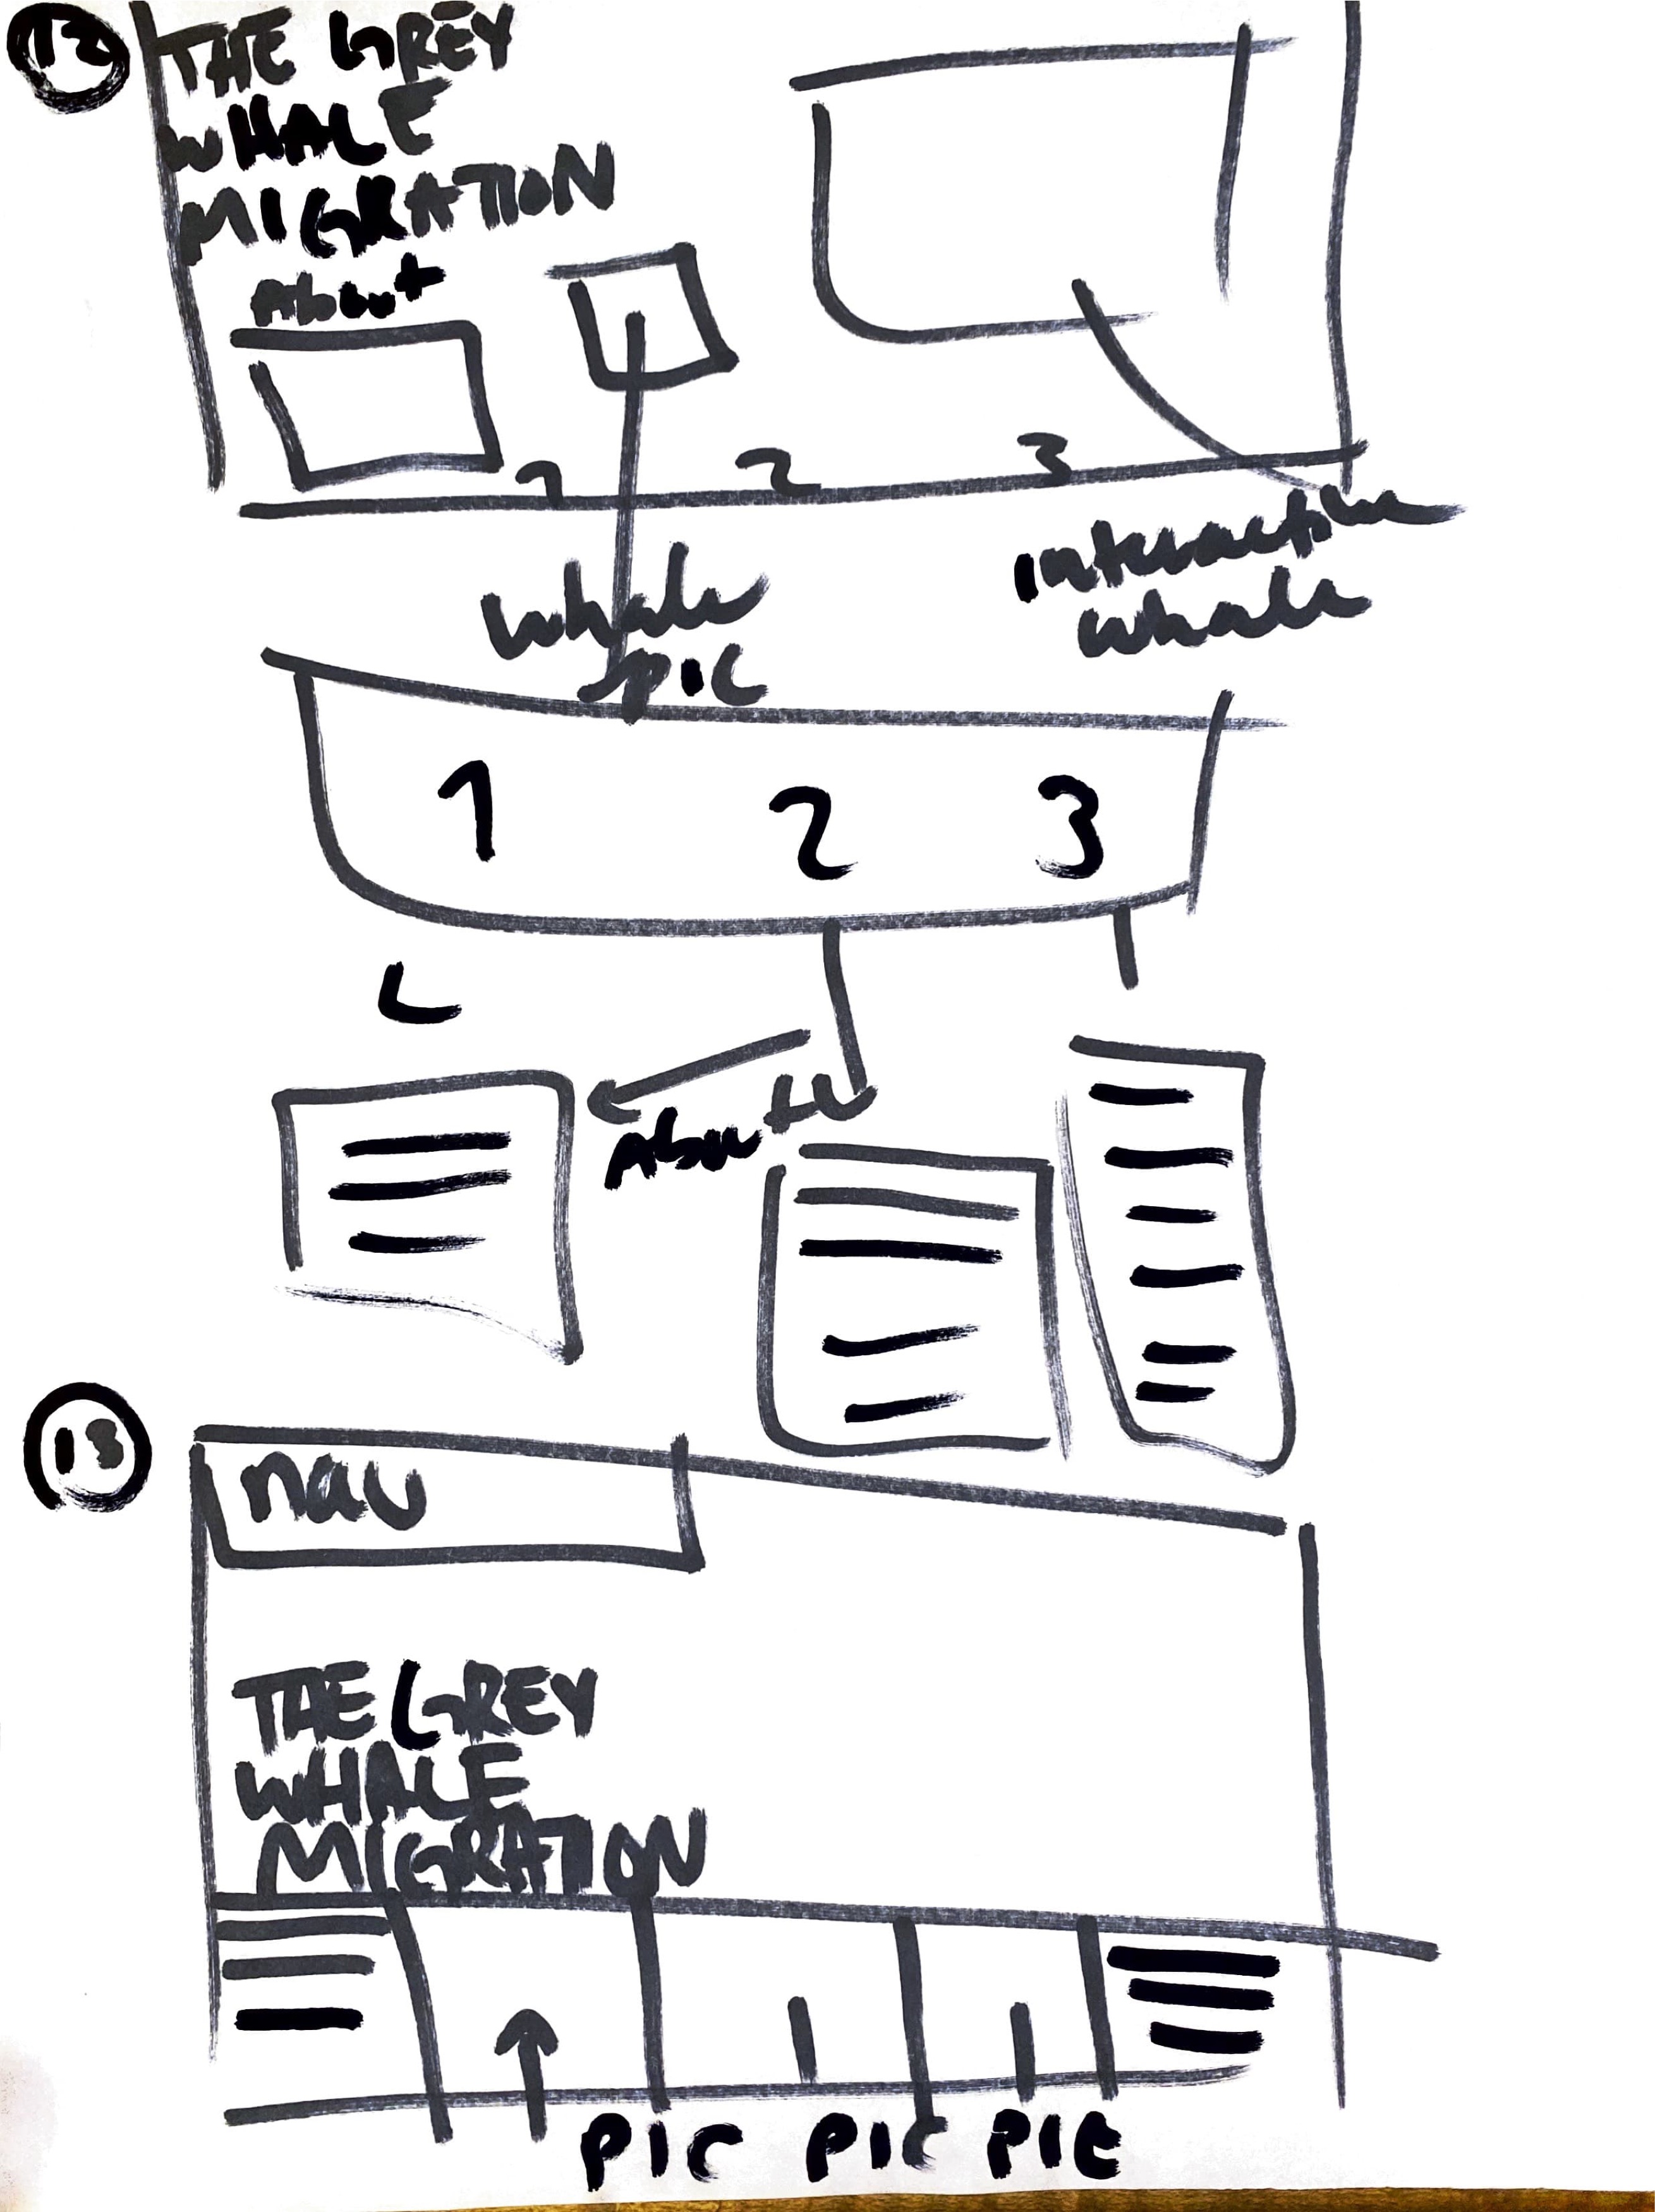 12
THE GREY
WHALE
MIGRATION
About
1 2 3
interactive
whale
whale
pic
1 2 3
About
13
nav
THE GREY
WHALE
MIGRATION
pic pic pic